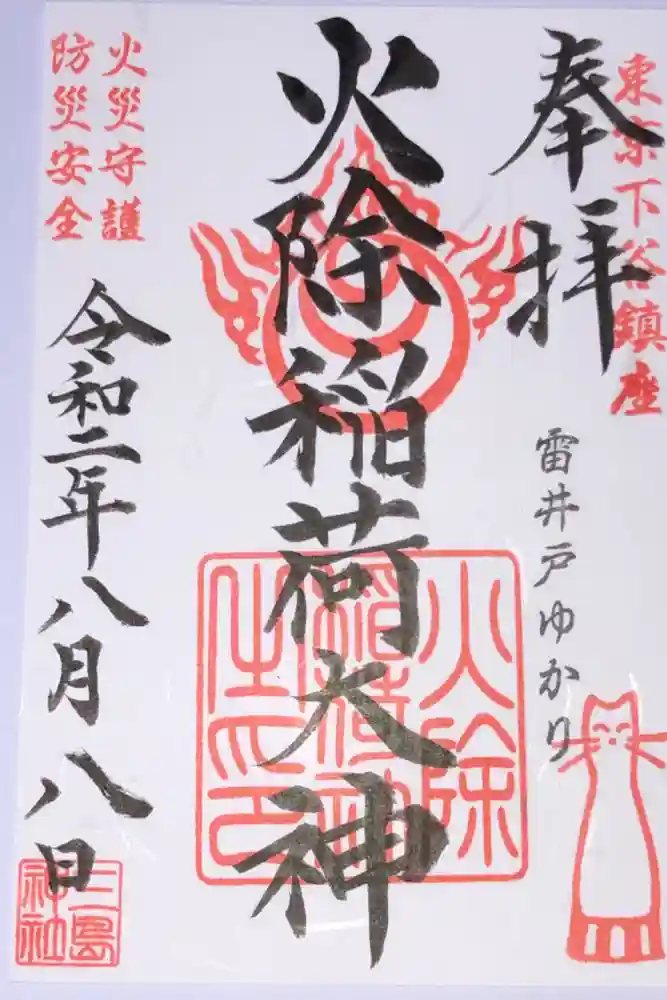 東京下谷鎮座
奉拝
雷井戸ゆかり
火除稲荷大神
火除
稲荷神
火災守護
防災安全
令和二年八月八日
三島
神社